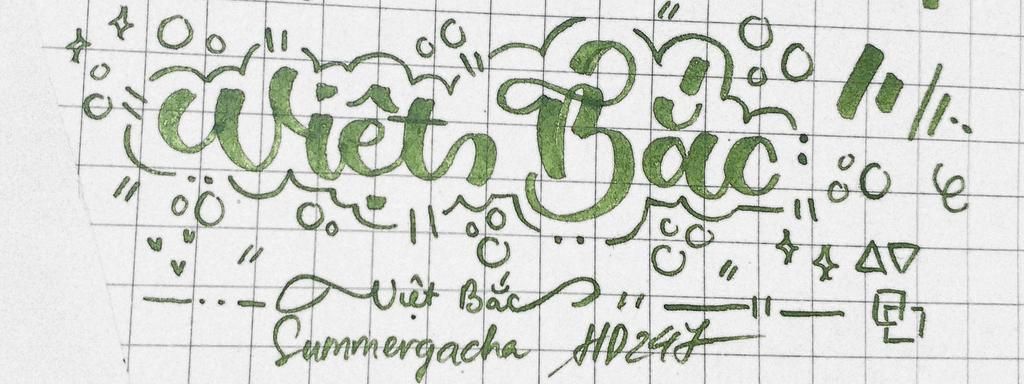 Việt Bắc
Việt Bắc
Summergacha HD247